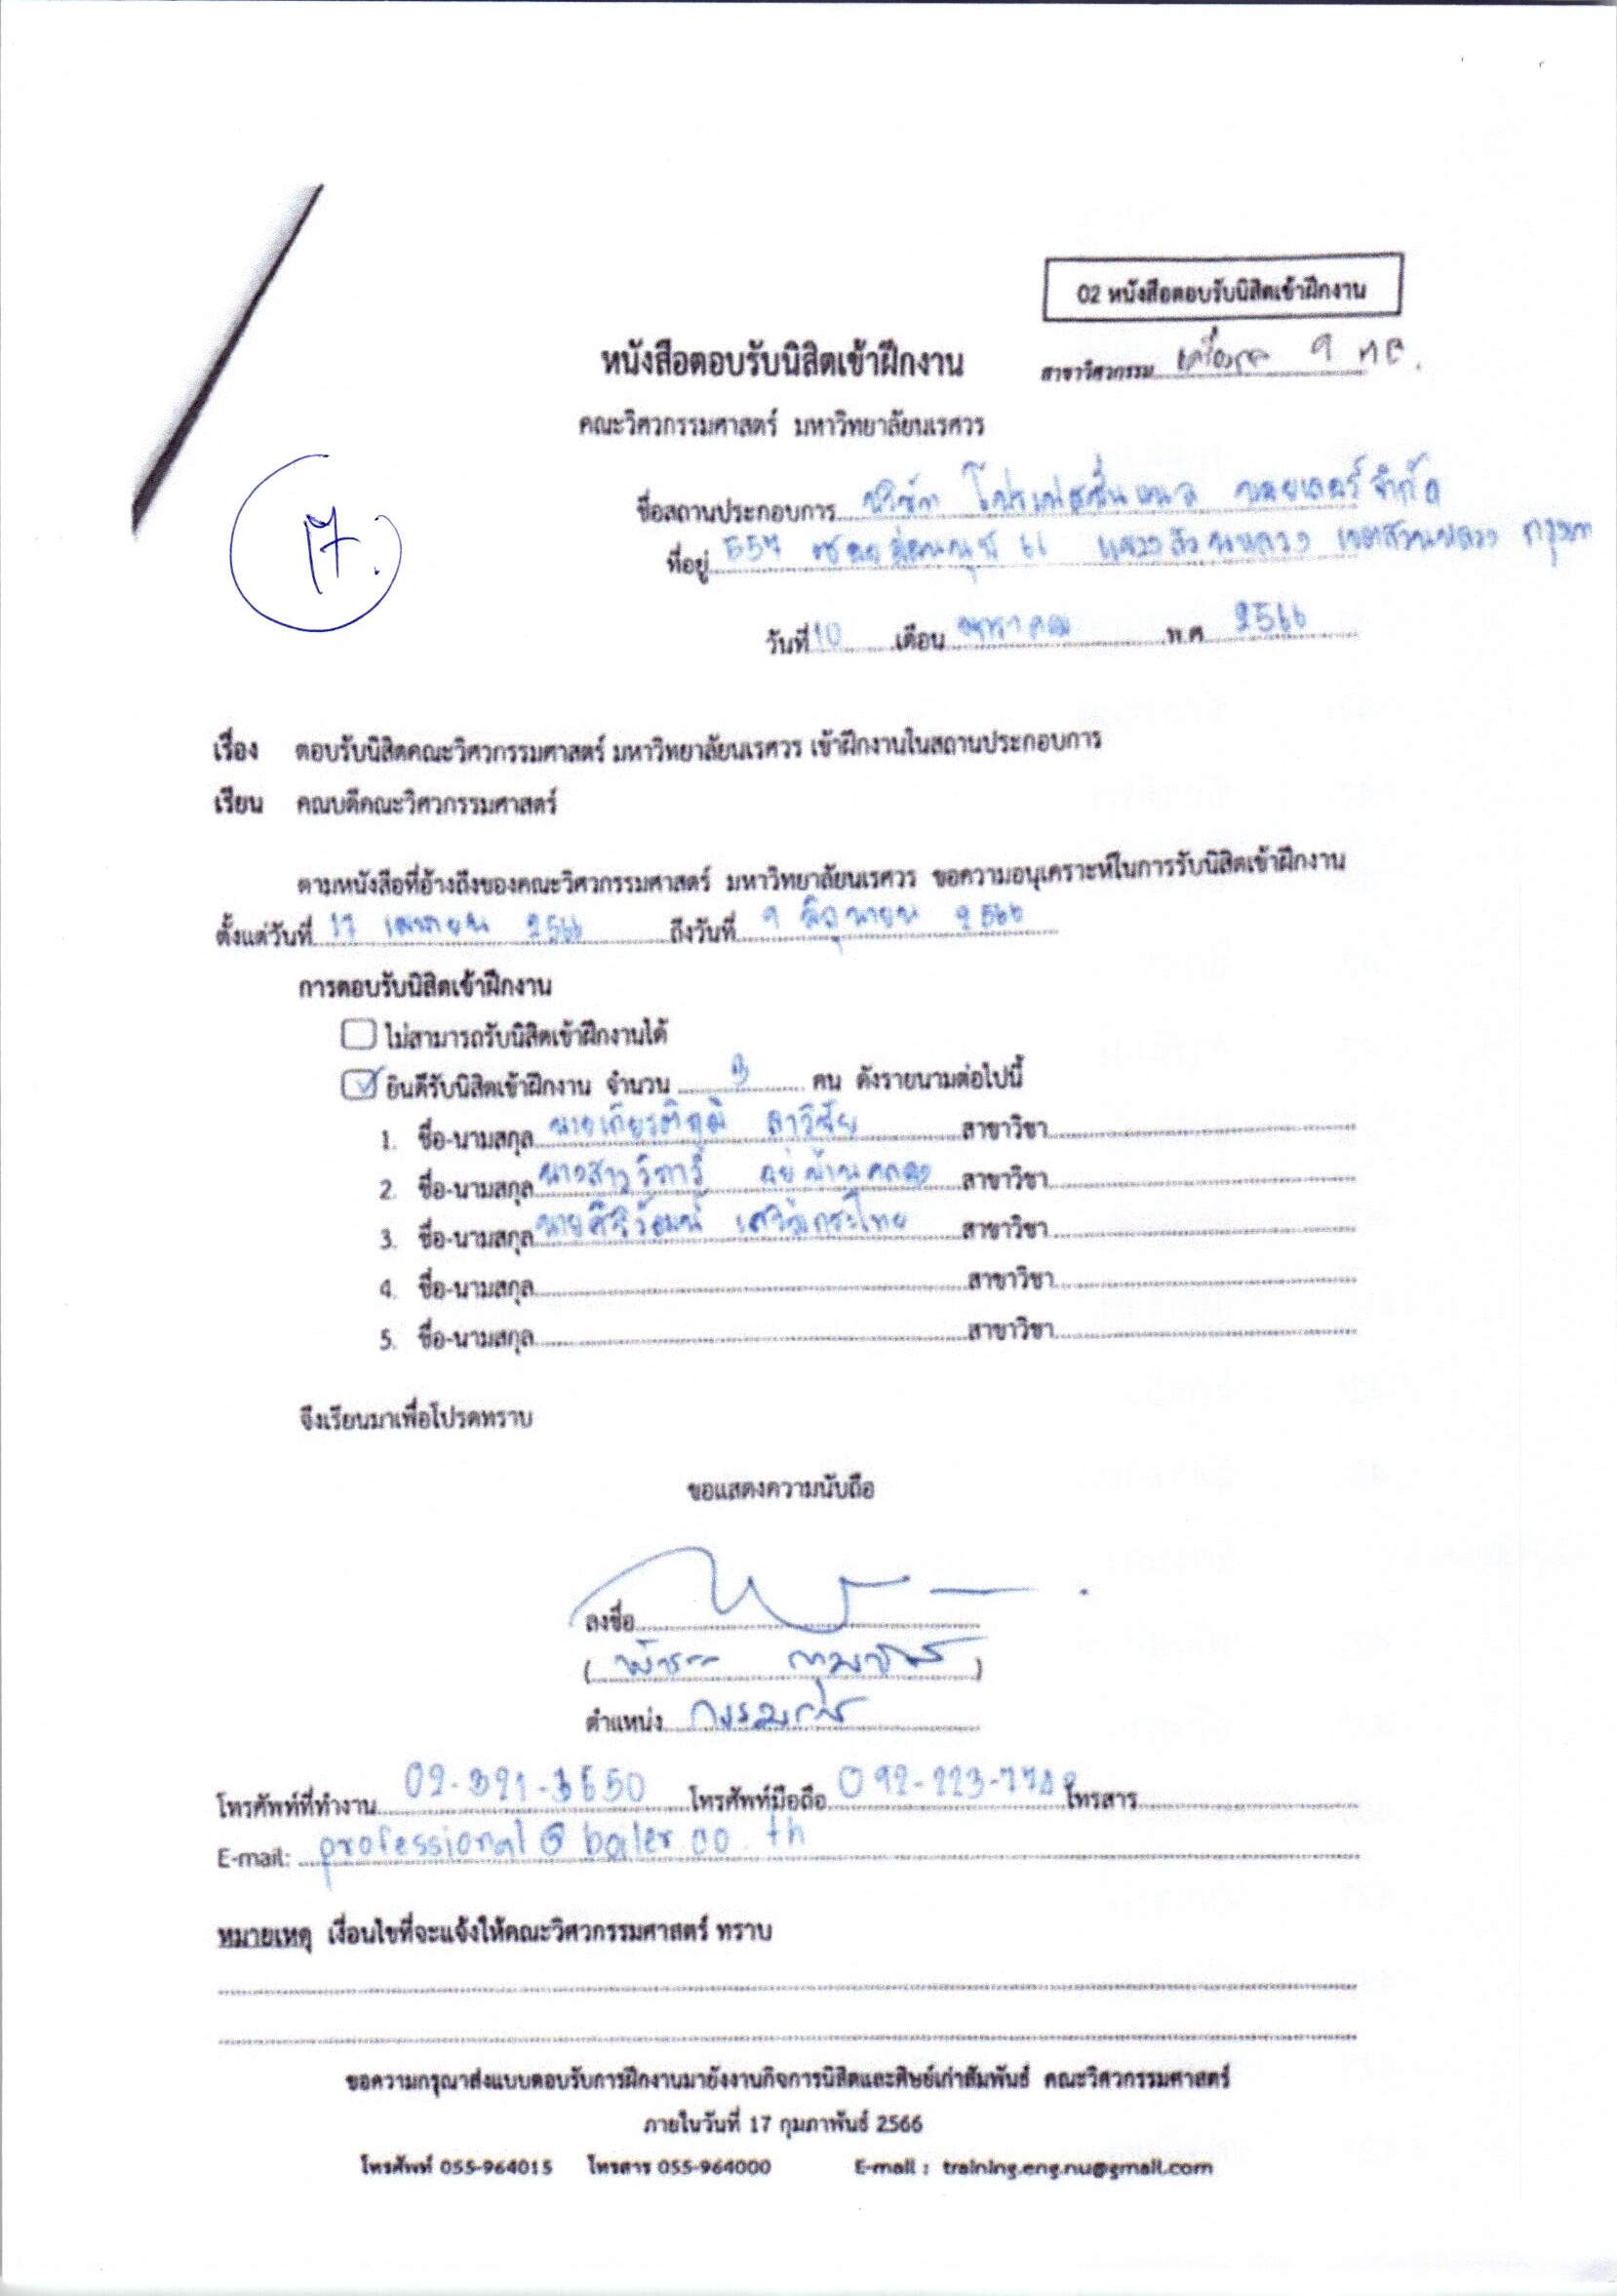 02 หนังสือตอบรับนิสิตเข้าฝึกงาน
หนังสือตอบรับนิสิตเข้าฝึกงาน
สาขาวิศวกรรม
คณะวิศวกรรมศาสตร์ มหาวิทยาลัยนเรศวร
17.
ชื่อสถานประกอบการ บริษัท โปรเฟสชั่นแนล บอยเลอร์ จำกัด
ที่อยู่ 557 ซอยอ่อนนุช 66 แขวงสวนหลวง เขตสวนหลวง กรุงเทพ
วันที่ 10 เดือน มกราคม พ.ศ. 2566
เรื่อง ตอบรับนิสิตคณะวิศวกรรมศาสตร์ มหาวิทยาลัยนเรศวร เข้าฝึกงานในสถานประกอบการ
เรียน คณบดีคณะวิศวกรรมศาสตร์
ตามหนังสือที่อ้างถึงของคณะวิศวกรรมศาสตร์ มหาวิทยาลัยนเรศวร ขอความอนุเคราะห์ในการรับนิสิตเข้าฝึกงาน
ตั้งแต่วันที่ 17 เมษายน 2566 ถึงวันที่ 9 มิถุนายน 2566
การตอบรับนิสิตเข้าฝึกงาน
ไม่สามารถรับนิสิตเข้าฝึกงานได้
ยินดีรับนิสิตเข้าฝึกงาน จำนวน 3 คน ดังรายนามต่อไปนี้
1. ชื่อ-นามสกุล นายเกียรติภูมิ ลาวิชัย สาขาวิชา
2. ชื่อ-นามสกุล นางสาววิภาวี อยู่บ้านคลอง สาขาวิชา
3. ชื่อ-นามสกุล นายศิริวัฒน์ สาขาวิชา
4. ชื่อ-นามสกุล สาขาวิชา
5. ชื่อ-นามสกุล สาขาวิชา
จึงเรียนมาเพื่อโปรดทราบ
ขอแสดงความนับถือ
ลงชื่อ
( )
ตำแหน่ง กรรมการ
โทรศัพท์ที่ทำงาน 02-321-3650 โทรศัพท์มือถือ โทรสาร
E-mail: professional@boiler.co.th
หมายเหตุ เงื่อนไขที่จะแจ้งให้คณะวิศวกรรมศาสตร์ ทราบ
ขอความกรุณาส่งแบบตอบรับการฝึกงานมายังงานกิจการนิสิตและศิษย์เก่าสัมพันธ์ คณะวิศวกรรมศาสตร์
ภายในวันที่ 17 กุมภาพันธ์ 2566
โทรศัพท์ 055-964015 โทรสาร 055-964000 E-mail : training.eng.nu@gmail.com